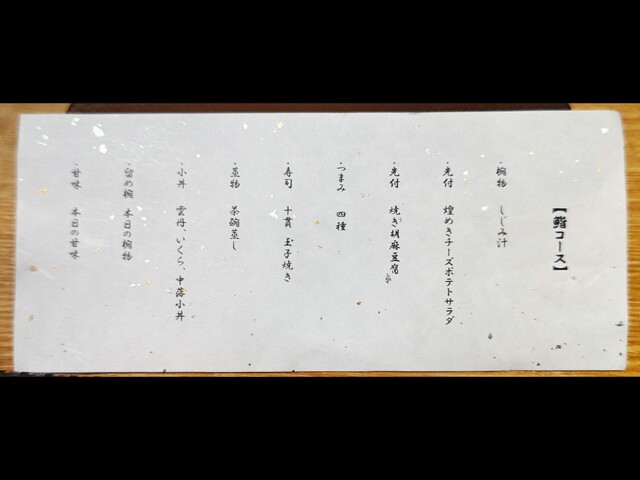 【鮨コース】
・椀物 しじみ汁
・先付 煌めきチーズポテトサラダ
・先付 焼き胡麻豆腐
・つまみ 四種
・寿司 十貫 玉子焼き
・蒸物 茶碗蒸し
・小丼 雲丹、いくら、中落小丼
・留め椀 本日の椀物
・甘味 本日の甘味